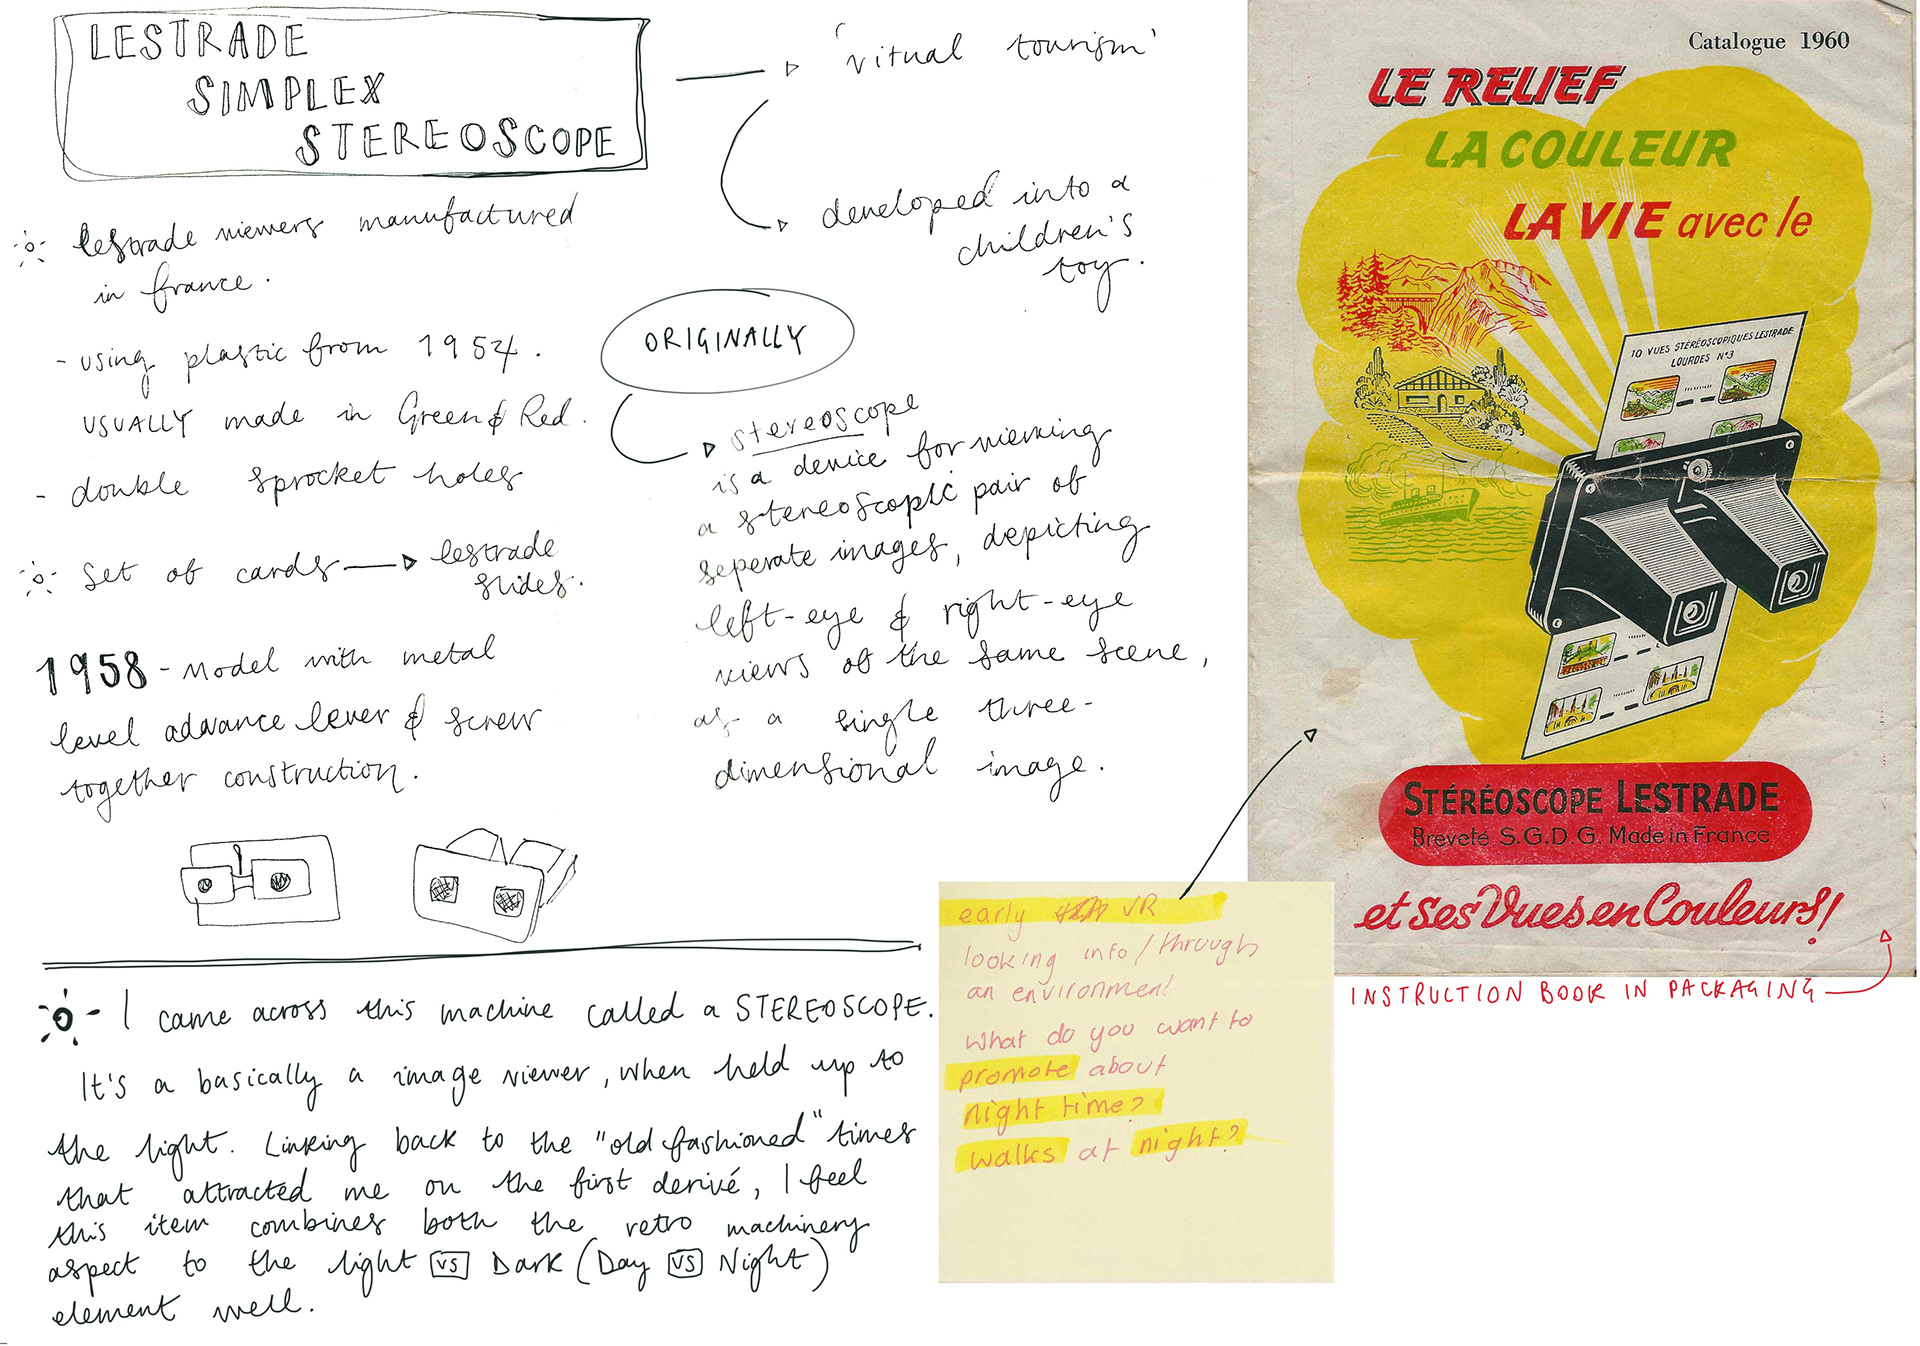 LESTRADE
SIMPLEX
STEREOSCOPE
'vitual tourism'
developed into a
children's
toy.
lestrade viewers manufactured
in france.
- using plastic from 1954.
USUALLY made in Green & Red.
- double sprocket holes
set of cards
lestrade
slides.
1958 - Model with metal
level advance lever & screw
together construction.
ORIGINALLY
stereoscope
is a device for viewing
a stereoscopic pair of
seperate images, depicting
left-eye & right-eye
views of the same scene,
as a single three-
dimensional image.
- I came across this machine called a STEREOSCOPE.
It's a basically a image viewer, when held up to
the light. Linking back to the "old fashioned" times
that attracted me on the first derivé, I feel
this item combines both the retro machinery
aspect to the light VS Dark (Day VS Night)
element well.
early VR
looking into/through
an environment
What do you want to
promote about
night time?
walks at night?
Catalogue 1960
LE RELIEF
LA COULEUR
LA VIE avec le
10 VUES STÉRÉOSCOPIQUES LESTRADE
LOURDES N°3
STÉRÉOSCOPE LESTRADE
Breveté S.G.D.G. Made in France
et ses Vues en Couleurs!
INSTRUCTION BOOK IN PACKAGING